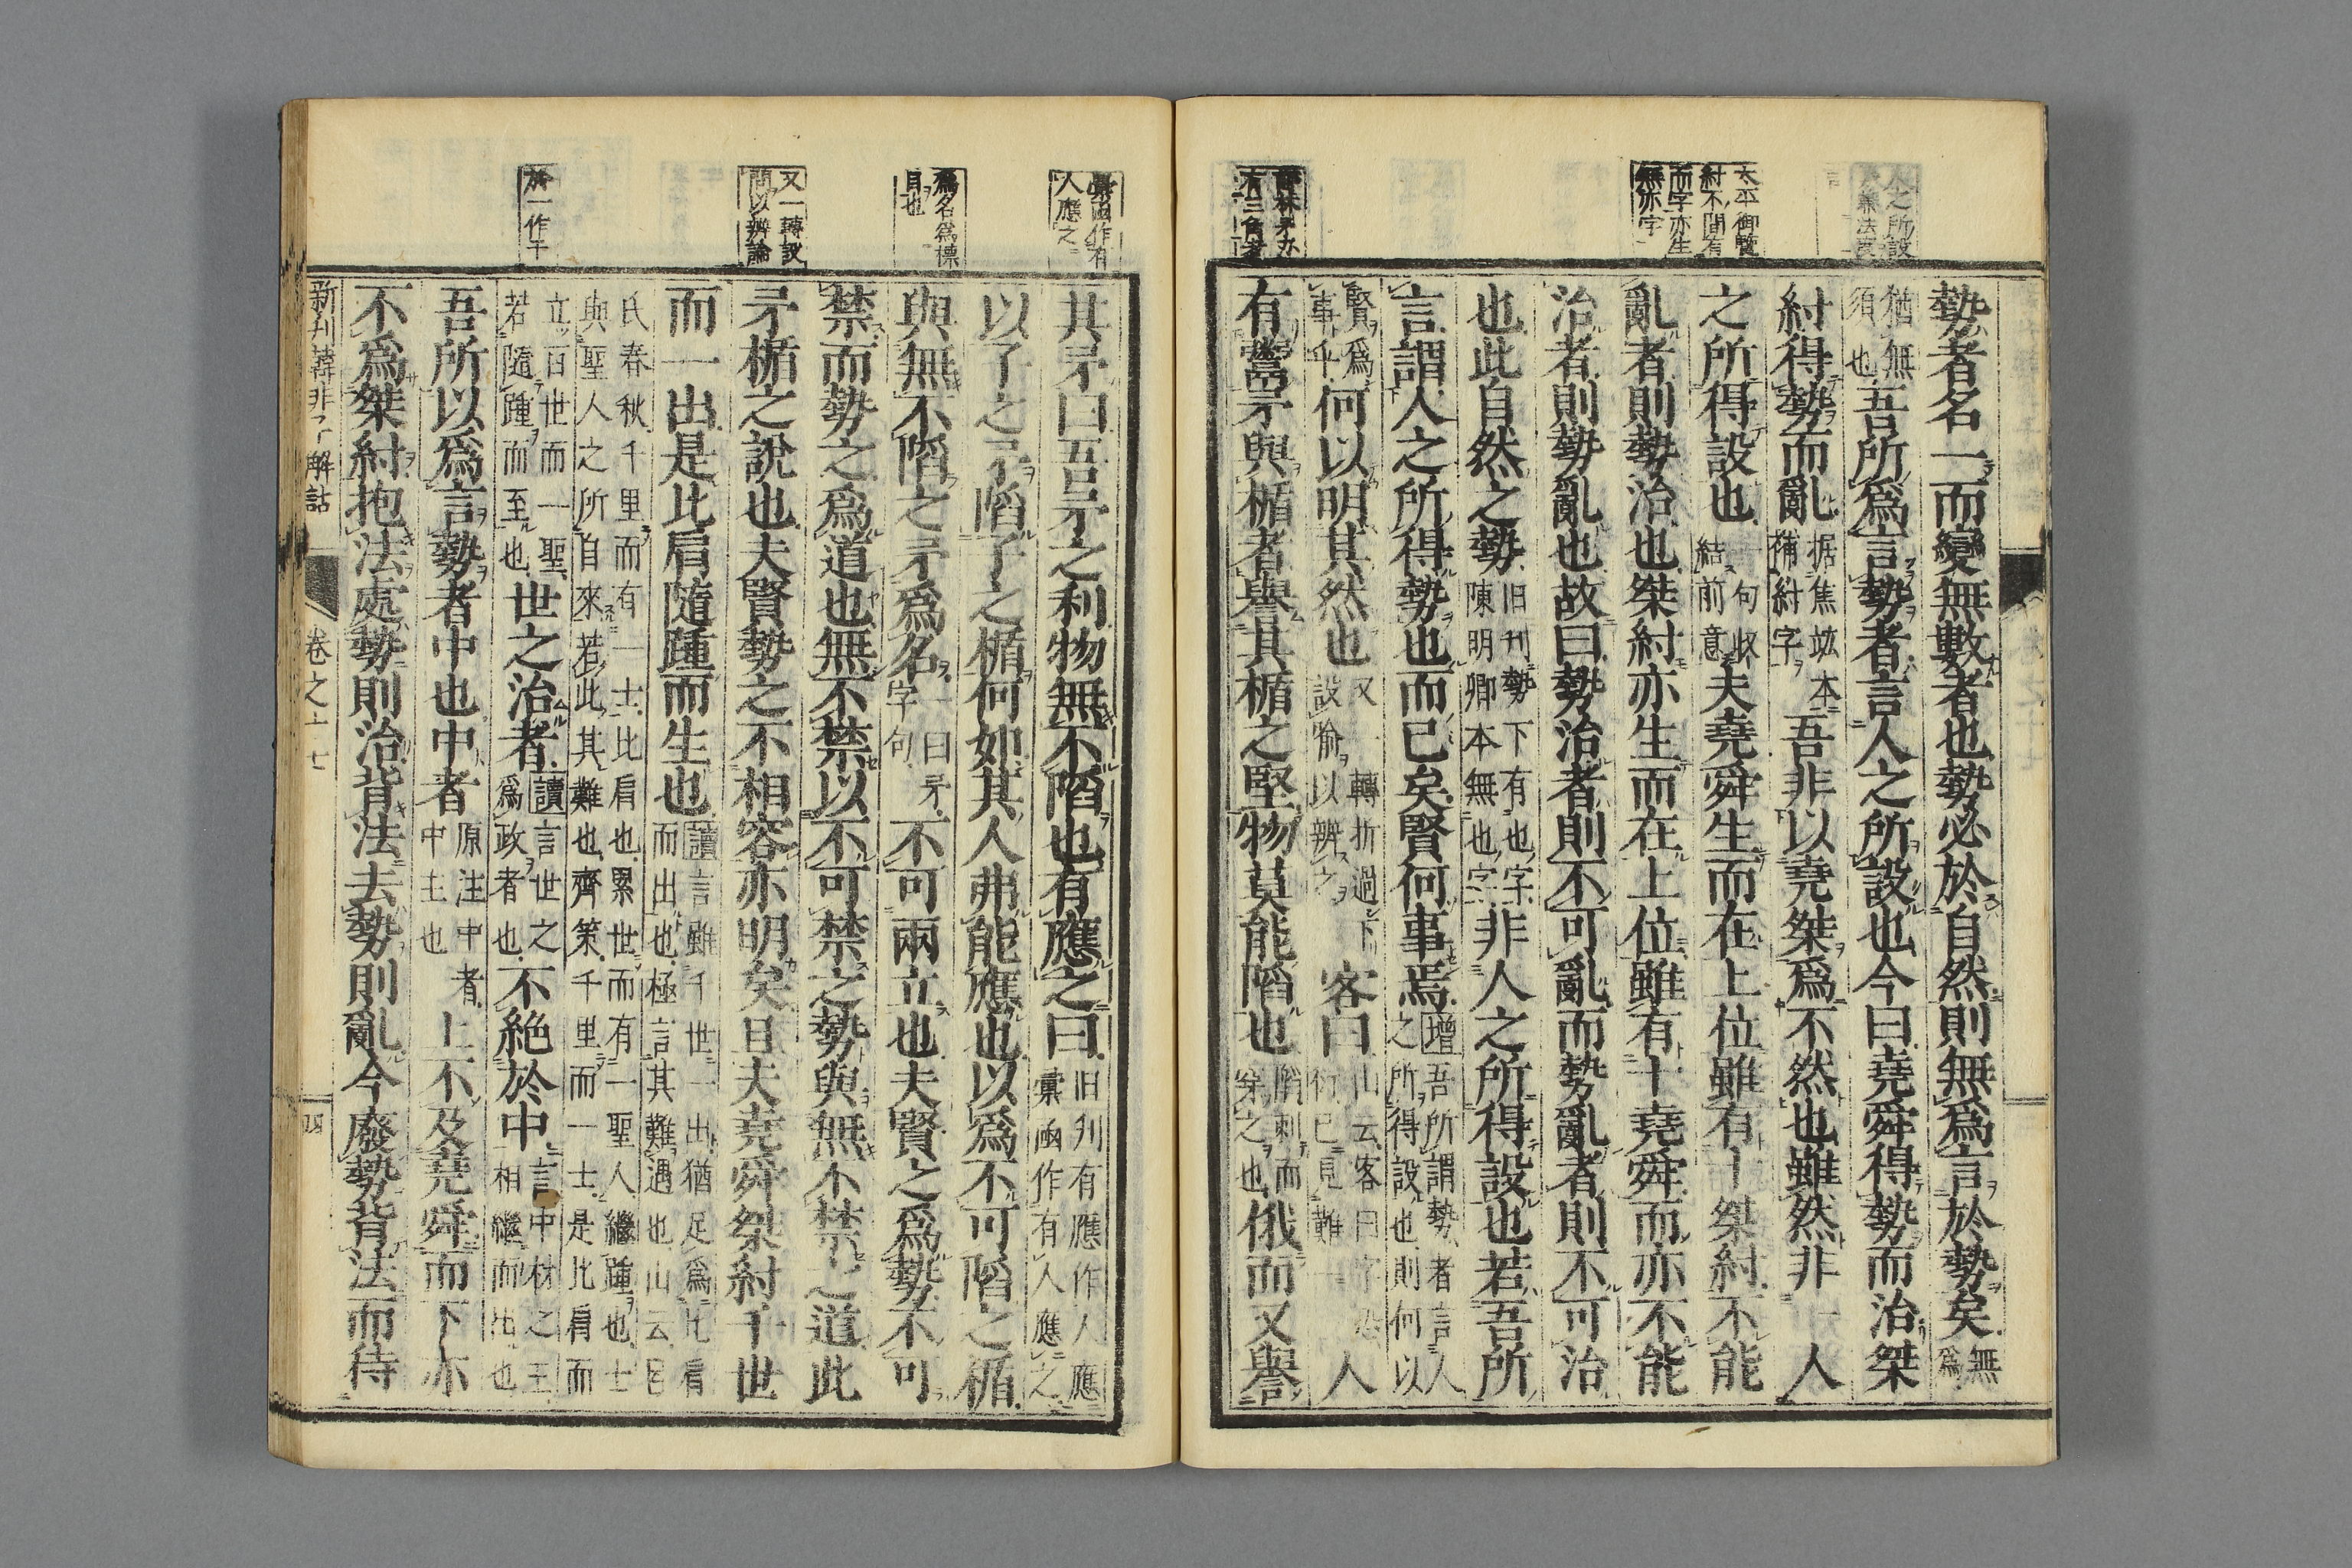 勢者名一而變無數者也勢必於自然則無爲言於勢矣無爲
猶無須也吾所爲言勢者言人之所設也今曰堯舜得勢而治桀
紂得勢而亂据焦竑本補紂字吾非以堯桀爲不然也雖然非一人
之所得設也一句收結前意夫堯舜生而在上位雖有十桀紂不能
亂者則勢治也桀紂亦生而在上位雖有十堯舜而亦不能
治者則勢亂也故曰勢治者則不可亂而勢亂者則不可治
也此自然之勢旧刊勢下有也字陳明卿本無也字非人之所得設也若吾所
言謂人之所得勢也而已矣賢何事焉增吾所謂勢者言人之所得設也則何以
賢爲事乎何以明其然也又一轉折過下設喻以辨之客曰山云客曰 人
有鬻矛與楯者譽其楯之堅物莫能陷也 刺而穿之也俄而又譽
太平御覽
紂不間有
而字亦生
無亦字
其矛曰吾矛之利物無不陷也有應之曰旧刊有應作人應彙函作有人應之
以子之矛陷子之楯何如其人弗能應也以爲不可陷之楯
與無不陷之矛爲名一曰矛字句不可兩立也夫賢之爲勢不可
禁而勢之爲道也無不禁以不可禁之勢與無不禁之道此
矛楯之說也夫賢勢之不相容亦明矣且夫堯舜桀紂千世
而一出是比肩隨踵而生也讀言雖千世一出猶足爲比肩而出也極言其難遇也山云呂
氏春秋千里而有一士比肩也累世而有一聖人繼踵也士與聖人之所自來若此其難也齊策千里而一士是比肩而
立百世而一聖若隨踵而至也世之治者讀言世之爲政者也不絶於中言中材之主相繼而出也
吾所以爲言勢者中也中者原注中者中主也上不及堯舜而下亦
不爲桀紂抱法處勢則治背法去勢則亂今廢勢背法而待
彙函作有
人應之
爲名爲標
目也
又一轉設
問以辨論
於一作于
新刊韓非子解詁
卷之十七
四